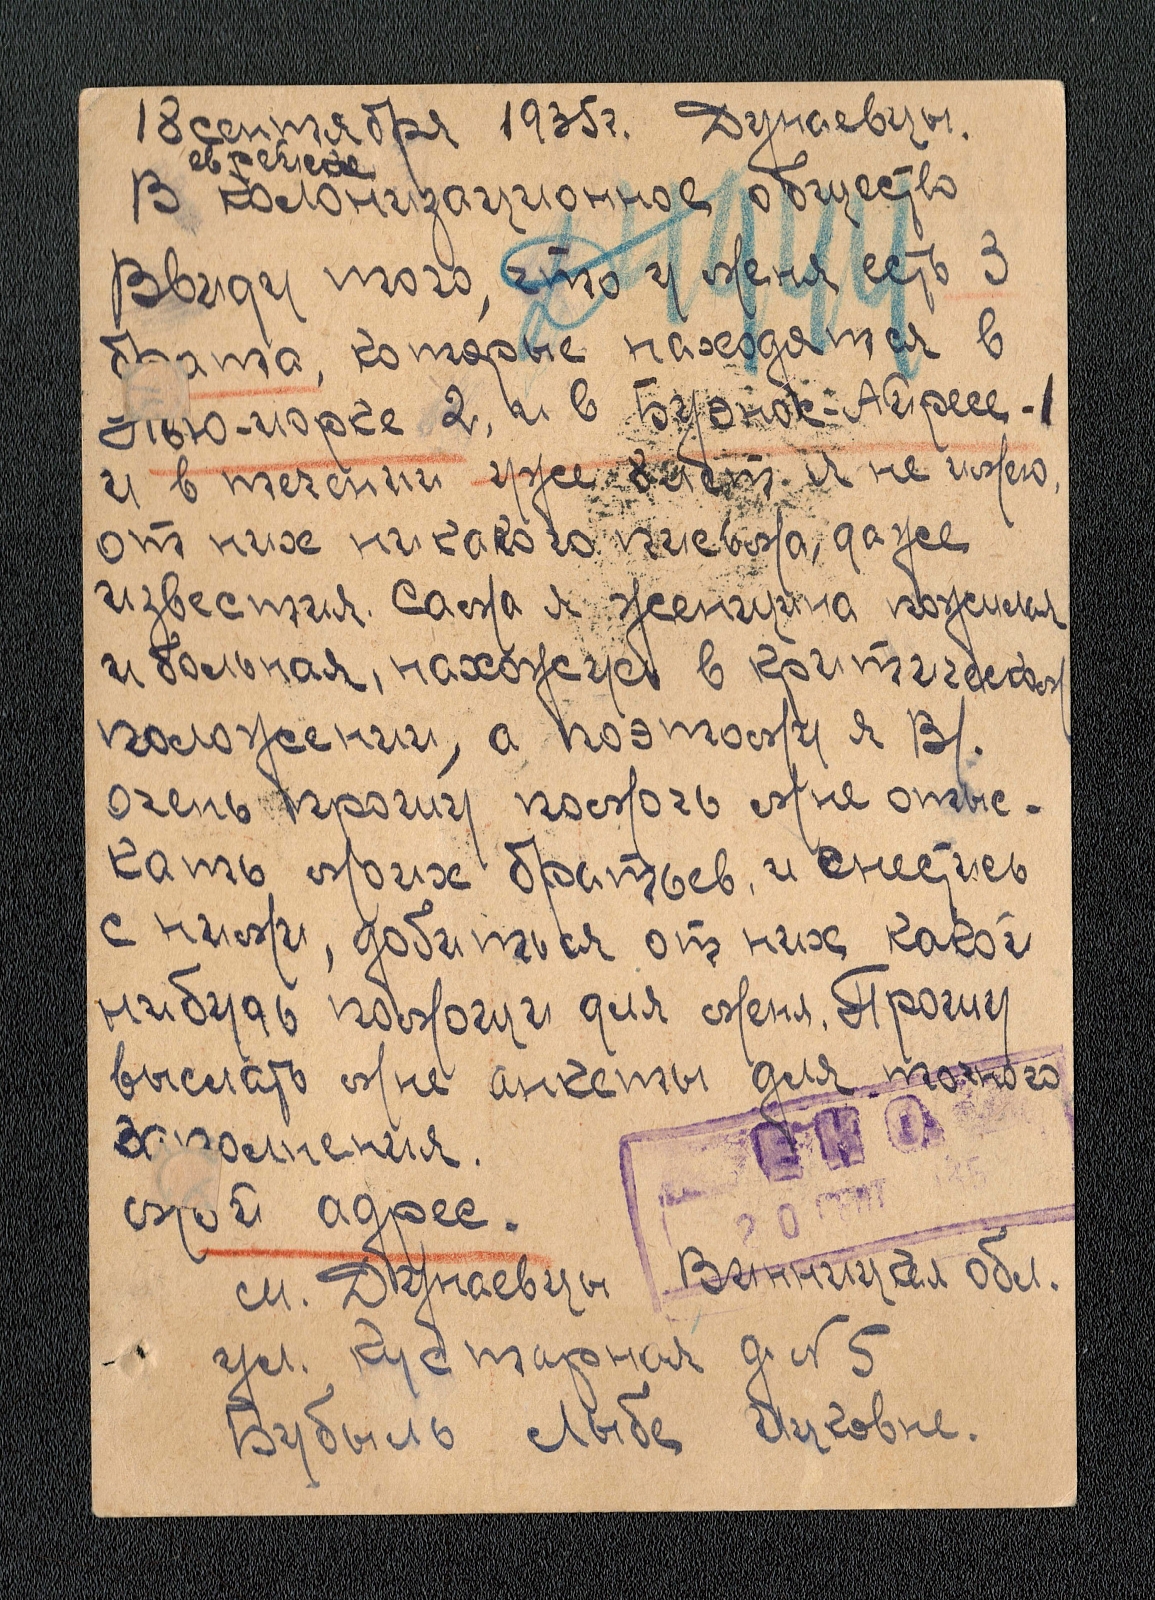 18 сентября 1935г. Дунаевцы.
еврейское
В колонизационное общество
Ввиду того, что у меня есть 3
брата, которые находятся в
Нью-иорке 2, и в Буэнос-Айресе-1
и в течении уже лет я не имею,
от них никакого письма, даже
известия. Сама я женщина пожилая
и больная, нахожусь в критическом
положении, а поэтому я В/.
очень прошу помочь мне отыс-
кать моих братьев, и снестись
с ними, добиться от них какой
нибудь помощи для меня. Прошу
выслать мне анкеты для точного
заполнения.
мой адрес.
ЕКО
20 СЕНТ 1935
м. Дунаевцы Винницкая обл.
ул. Кустарная д. № 5
Бубыль Лыбе Ицковне.